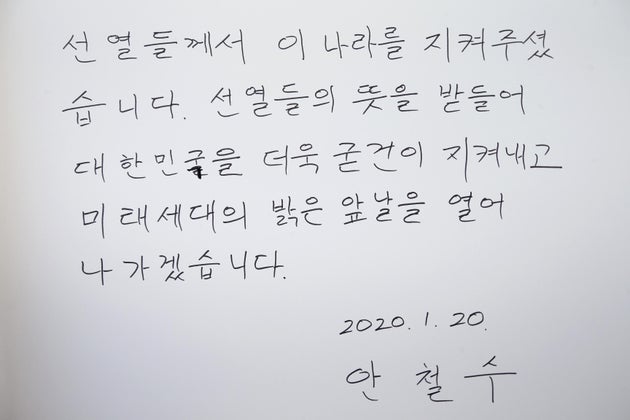 선열들께서 이 나라를 지켜주셨
습니다. 선열들의 뜻을 받들어
대한민국을 더욱 굳건이 지켜내고
미래세대의 밝은 앞날을 열어
나가겠습니다.
2020. 1. 20.
안 철 수